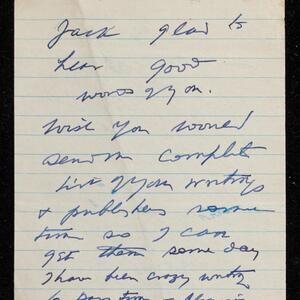 Jack glad to
hear good
words of you.
Wish you would
send me complete
list of your writings
& publishers some
time so I can
get them some day
I have been crazy writing